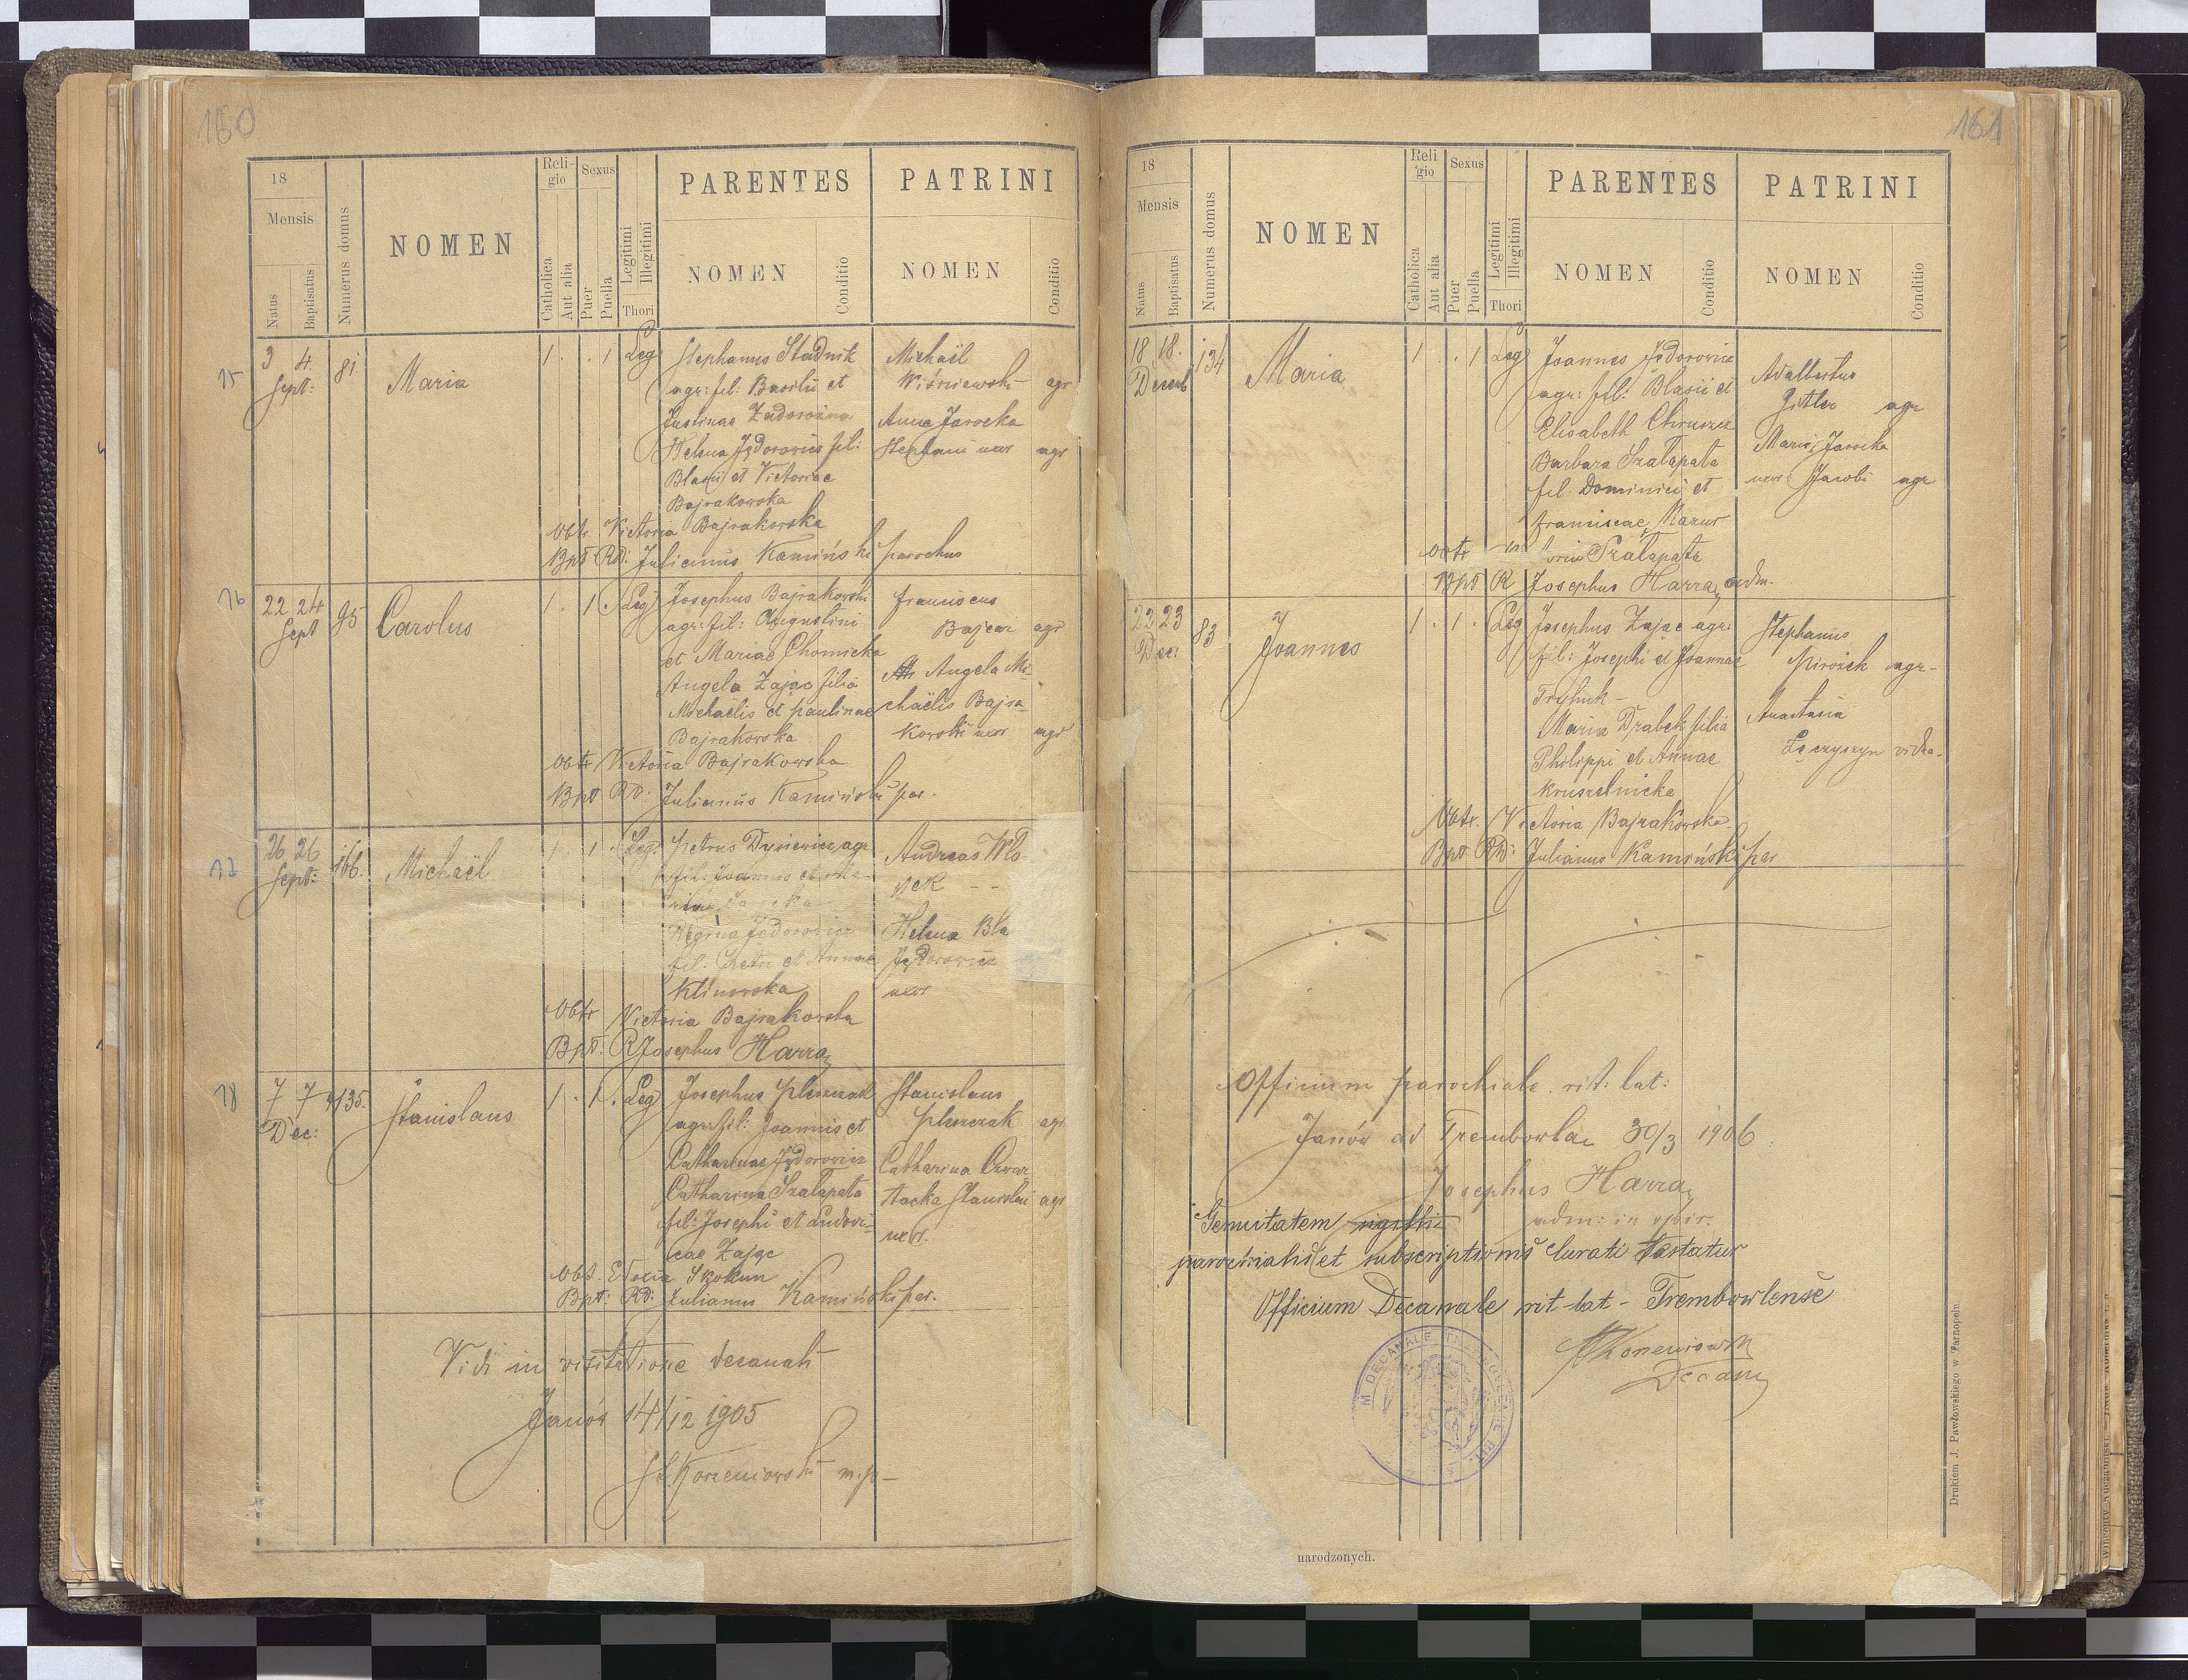 160
18
Mensis
Natus
Baptisatus
Numerus domus
NOMEN
Reli-
gio
Catholica
Aut alia
Sexus
Puer
Puella
Legitimi
Illegitimi
Thori
PARENTES
NOMEN
Conditio
PATRINI
NOMEN
Conditio
15
3 4.
Sept:
81.
Maria
1 . . 1 Leg
Stephanus Stadnik
agr: fil: Basilii et
Justinae Zadorożna
Helena Jędorowicz fil:
Blasii et Victoriae
Bajrakowska
Michaël
Wiśniewski agr
Anna Jarocka
Stephani uxor agr
Obtr Victoria Bajrakowska
Bpt RD: Julianus Kamiński parochus
16
22 24
Sept
95
Carolus
1 . 1 . Leg
Josephus Bajrakowski
agr: fil: Augustini
et Mariae Chomicka
Angela Zając filia
Michaëlis et Paulinae
Bajrakowska
Franciscus
Bajcar agr
Angela Mi-
chaëlis Bajra-
kowski uxor agr
Obtr Victoria Bajrakowska
Bpt RD: Julianus Kamiński par.
17
26 26
Sept:
166.
Michaël
1 . 1 . Leg.
Petrus Dysiewicz agr
fil: Joannis et Ma-
Regina Jędorowicz
fil: Petri et Annae
Klinowska
Andreas Wło
pek - -
Helena Bla
Jędorowicz
uxor
Obtr Victoria Bajrakowska
Bpt: R Josephus Harra
18
7 7
Dec:
135.
Stanislaus
1 . 1 . Leg
Josephus Pleszczak
agr: fil: Joannis et
Catharinae Jędorowicz
Catharina Szałapata
fil: Josephi et Ludovi-
cae Zając
Stanislaus
Pleszczak agr
Catharina Czwar
tacka Stanislai agr
uxor.
Obt. Skokun
Bpt: RD: Julianus Kamiński par.
Vidi in visitatione decanali
Janów 14/12 1905
St. Korzeniowski m.p.
161
18
Mensis
Natus
Baptisatus
Numerus domus
NOMEN
Reli
gio
Catholica
Aut alia
Sexus
Puer
Puella
Legitimi
Illegitimi
Thori
PARENTES
NOMEN
Conditio
PATRINI
NOMEN
Conditio
18 18.
Decemb
134
Maria
1 . . 1 Leg
Joannes Jędorowicz
agr: fil: Blasii et
Elisabeth Chruszcz
Barbara Szałapata
fil: Dominici et
Franciscae Mazur
Adalbertus
Gitler agr
Maria Jarocka
uxor Jacobi agr
Obtr Szałapata
Bpt R Josephus Harra adm.
22 23
Dec:
83
Joannes
1 . 1 . Leg
Josephus Zając agr:
fil: Josephi et Joannae
Tryhuk -
Maria Drabek filia
Philippi et Annae
Kruszelnicka
Stephanus
Pirożek agr-
Anastasia
Łęczyszyn vidua-
Obtr. Victoria Bajrakowska
Bpt RD: Julianus Kamiński par
Officium parochiale rit: lat:
Janów ad Trembowla 30/3 1906.
Josephus Harra
adm: in spir.
Genuitatem sigilli
parochialis et subscriptionis Curati testatur
Officium Decanale rit lat - Trembowlense
Korzeniowski
Decanus
M DECANALE
narodzonych.
Drukiem J. Pawłowskiego w Tarnopolu.